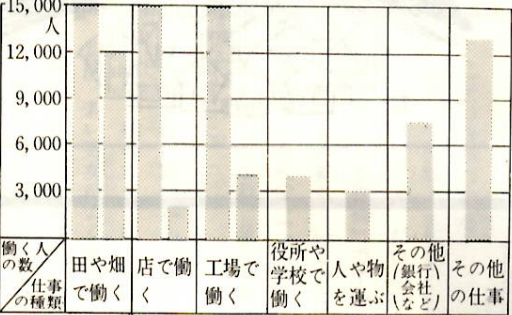 15,000
人
12,000
9,000
6,000
3,000
働く人
の数
仕事
の種類
田や畑
で働く
店で働
く
工場で
働く
役所や
学校で
働く
人や物
を運ぶ
その他
(銀行
会社
など)
その他
の仕事